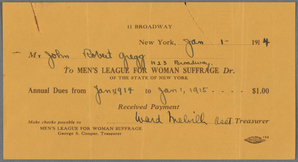 11 BROADWAY
New York, Jan 1- 1914
Mr John Robert Gregg
1123 Broadway
To MEN'S LEAGUE FOR WOMAN SUFFRAGE Dr.
OF THE STATE OF NEW YORK
Annual Dues from Jan 1914 to Jan 1, 1915 $1.00
Received Payment
Ward Melvill Treasurer
Make checks payable to
MEN'S LEAGUE FOR WOMAN SUFFRAGE
George S. Cooper, Treasurer